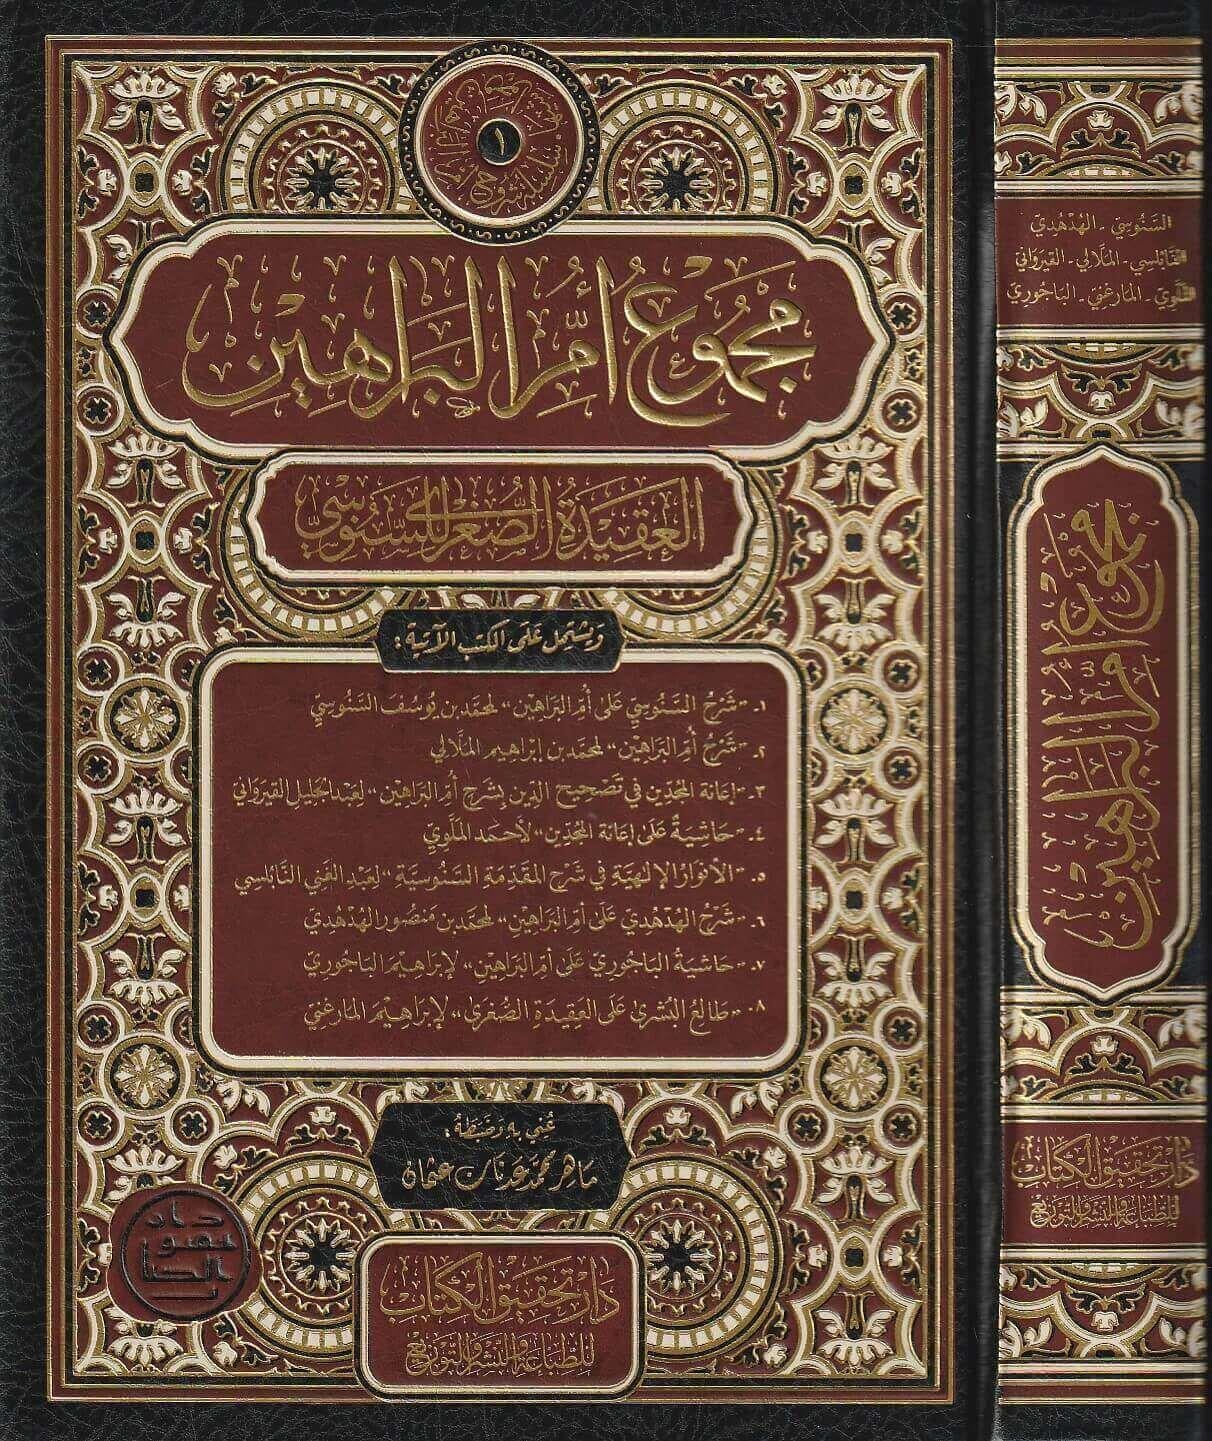 سلسلة شروح أم البراهين
١
مجموع أم البراهين
العقيدة الصغرى للسنوسي
ويشتمل على الكتب الآتية:
١- «شَرْحُ السَّنُوسِيِّ عَلى أُمِّ البَرَاهِين» لمحمد بن يُوسُف السَّنُوسِيّ
٢- «شَرْحُ أُمِّ البَرَاهِين» لمحمد بن إبْراهِيم الملّالي
٣- «إعَانة المُجدّين في تَصْحِيح الدِّين بشَرح أمّ البَراهين» لعبد الجَليل القيرواني
٤- «حَاشِيَةٌ عَلى إعَانَة المُجدّين» لأحمَد الملّويّ
٥- «الأنوارُ الإلٰهيّة في شَرْح المقَدّمة السَّنُوسيَّة» لعَبد الغَني النَّابلسي
٦- «شَرْحُ الهُدْهُديّ عَلى أمّ البَرَاهِين» لمحمد بن مَنصُور الهُدْهُديّ
٧- «حَاشيَةُ البَاجُوريّ عَلى أمِّ البَرَاهين» لإبراهِيم البَاجُوريّ
٨- «طَالعُ البُشرىٰ عَلى العَقيدَةِ الصُّغرى» لإبراهِيم المارغنيّ
عُني به وضبطه:
ماهر محمد عدنان عثمان
دار تحقيق الكتاب
للطباعة والنشر والتوزيع
السَّنُوسِيّ - الهُدْهُدِيّ
النَّابلسي - الملّالي - القيرواني
الملّويّ - المارغنيّ - البَاجُوريّ
مجموع أم البراهين
دار تحقيق الكتاب
للطباعة والنشر والتوزيع